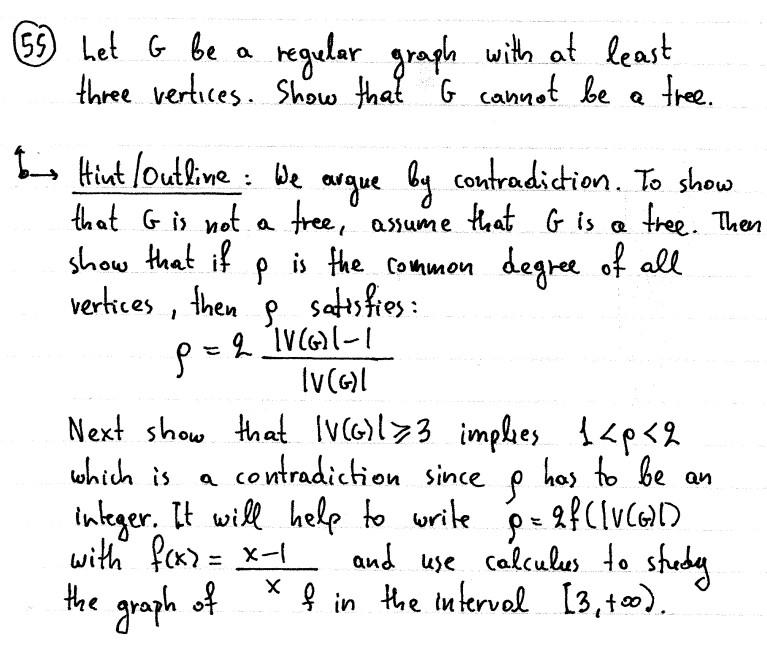 55 Let G be a regular graph with at least
three vertices. Show that G cannot be a tree.
↳ Hint/Outline: We argue by contradiction. To show
that G is not a tree, assume that G is a tree. Then
show that if ρ is the common degree of all
vertices, then ρ satisfies:
ρ = 2 (|V(G)|-1)/|V(G)|
Next show that |V(G)|⩾3 implies 1<ρ<2
which is a contradiction since ρ has to be an
integer. It will help to write ρ = 2f(|V(G)|)
with f(x) = (x-1)/x and use calculus to study
the graph of f in the interval [3,+∞).